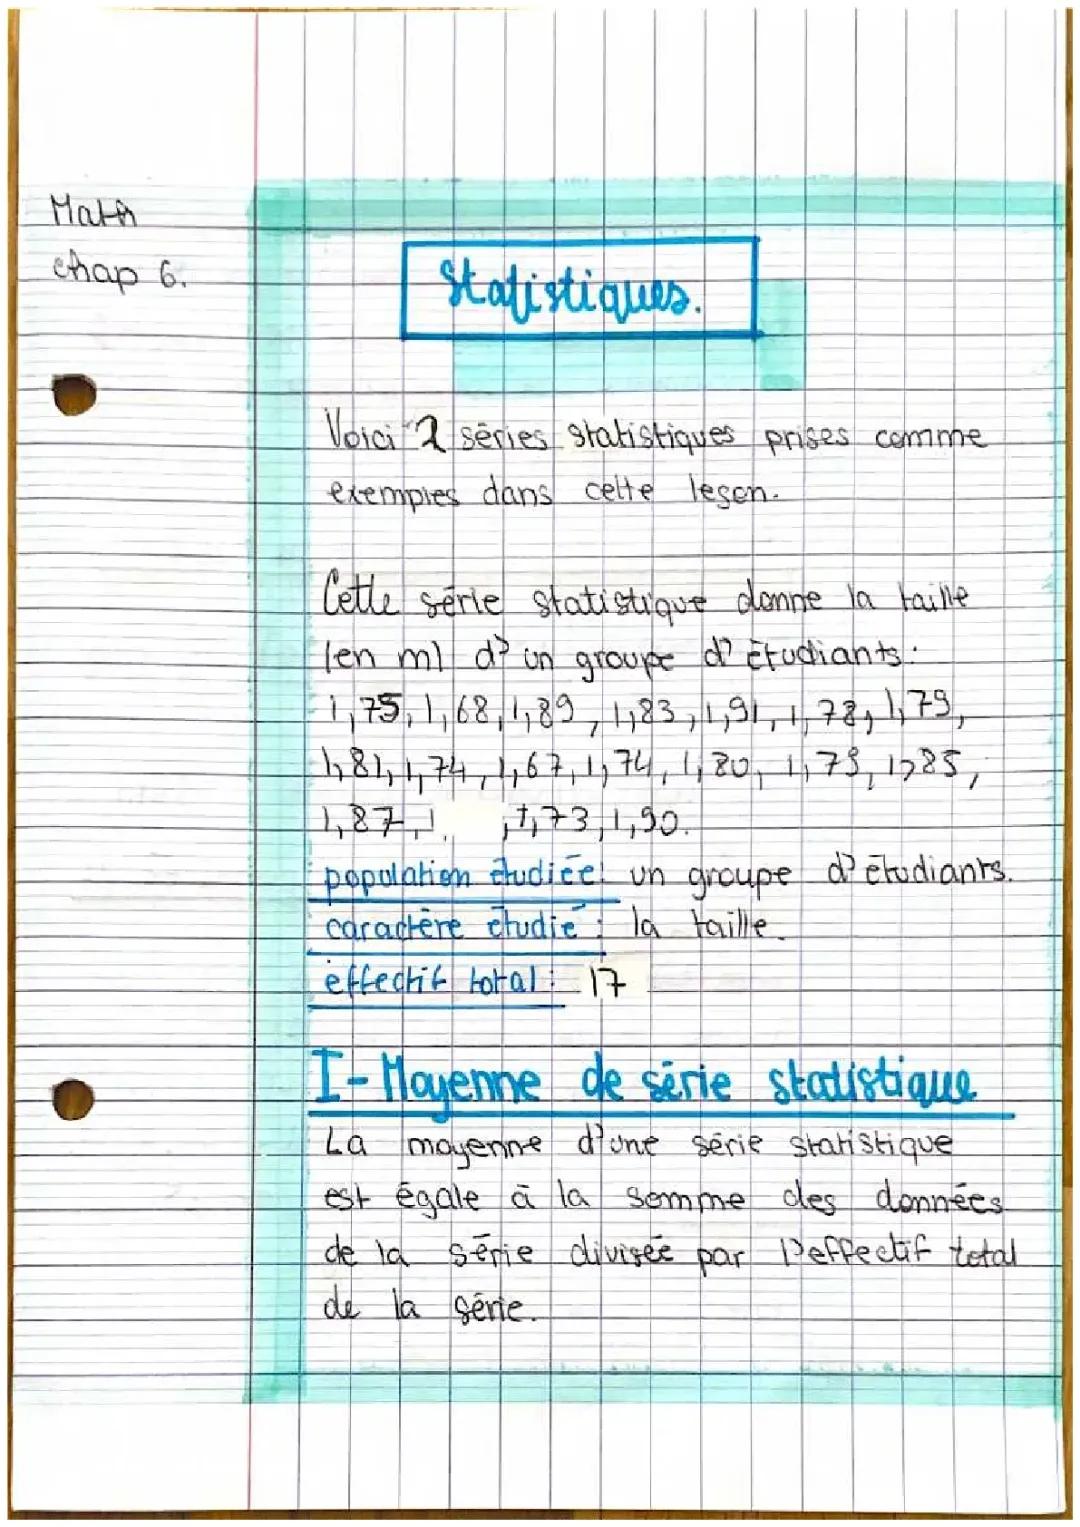 Math
chap 6.
Statistiques.
Voici 2 séries statistiques prises comme
exemples dans cette leçon.
Cette série statistique donne la taille
(en m) d'un groupe d'étudiants:
1,75, 1,68, 1,89, 1,83, 1,91, 1,78, 1,79,
1,81, 1,74, 1,67, 1,74, 1,80, 1,79, 1,85,
1,87, 1, , 1,73, 1,90.
population étudiée: un groupe d'étudiants.
caractère étudié: la taille.
effectif total: 17
I- Moyenne de série statistique
La moyenne d'une série statistique
est égale à la somme des données
de la série divisée par l'effectif total
de la série.